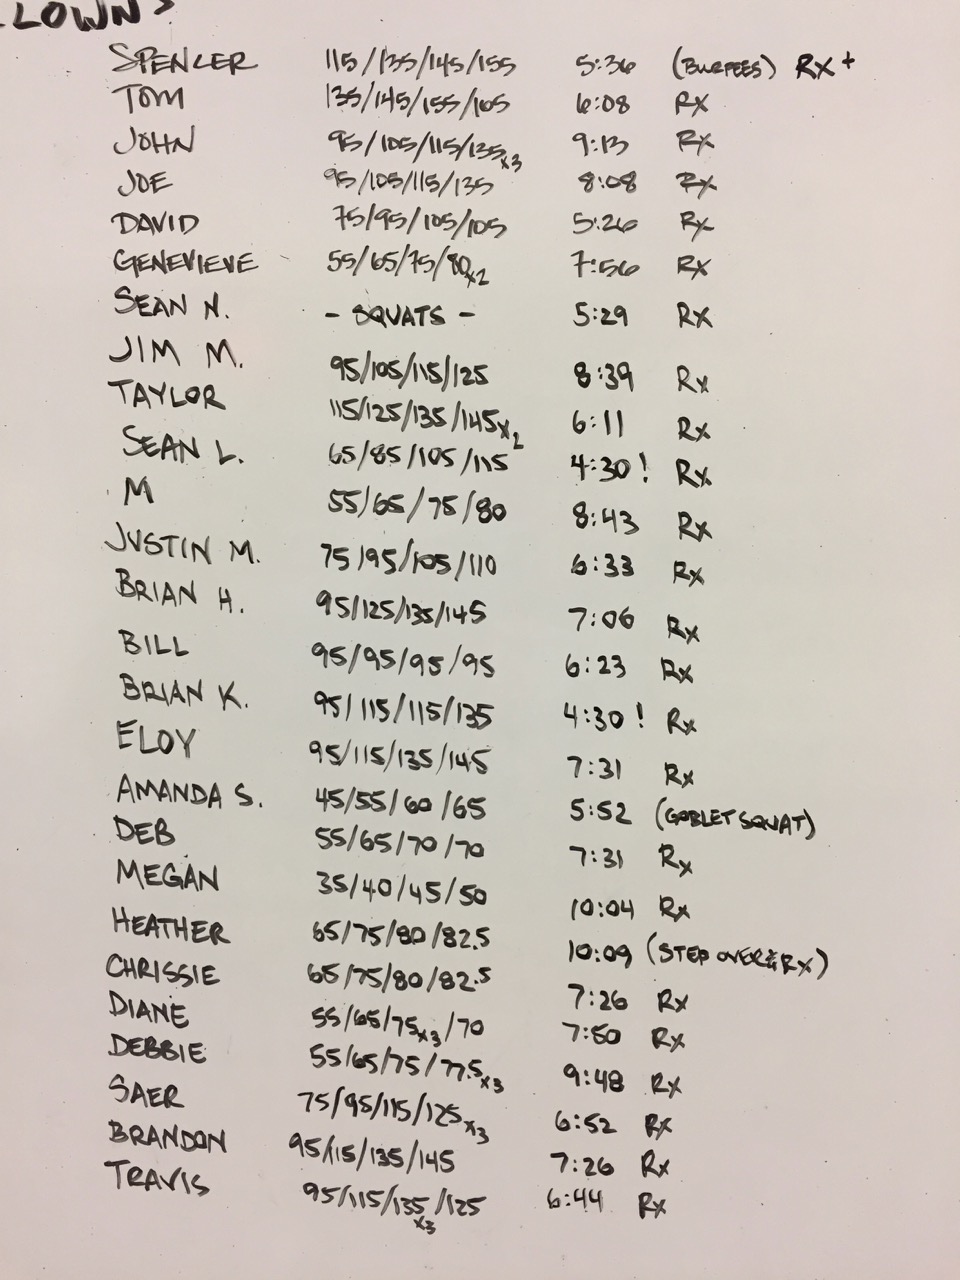 LOWN>
SPENCER 115/135/145/155 5:36 (BURPEES) RX+
TOM 135/145/155/165 6:08 RX
JOHN 95/105/115/135x3 9:13 RX
JOE 95/105/115/135 8:08 RX
DAVID 75/95/105/105 5:26 RX
GENEVIEVE 55/65/75/80x2 7:56 RX
SEAN N. - SQUATS - 5:29 RX
JIM M. 95/105/115/125 8:39 Rx
TAYLOR 115/125/135/145x2 6:11 Rx
SEAN L. 65/85/105/115 4:30! Rx
M 55/65/75/80 8:43 Rx
JUSTIN M. 75/95/105/110 6:33 Rx
BRIAN H. 95/125/135/145 7:06 Rx
BILL 95/95/95/95 6:23 Rx
BRIAN K. 95/115/115/135 4:30! Rx
ELOY 95/115/135/145 7:31 Rx
AMANDA S. 45/55/60/65 5:52 (GOBLET SQUAT)
DEB 55/65/70/70 7:31 Rx
MEGAN 35/40/45/50 10:04 Rx
HEATHER 65/75/80/82.5 10:09 (STEP OVER & RX)
CHRISSIE 65/75/80/82.5 7:26 Rx
DIANE 55/65/75x3/70 7:50 Rx
DEBBIE 55/65/75/77.5x3 9:48 Rx
SAER 75/95/115/125x3 6:52 Rx
BRANDON 95/115/135/145 7:26 Rx
TRAVIS 95/115/135x3/125 6:44 Rx